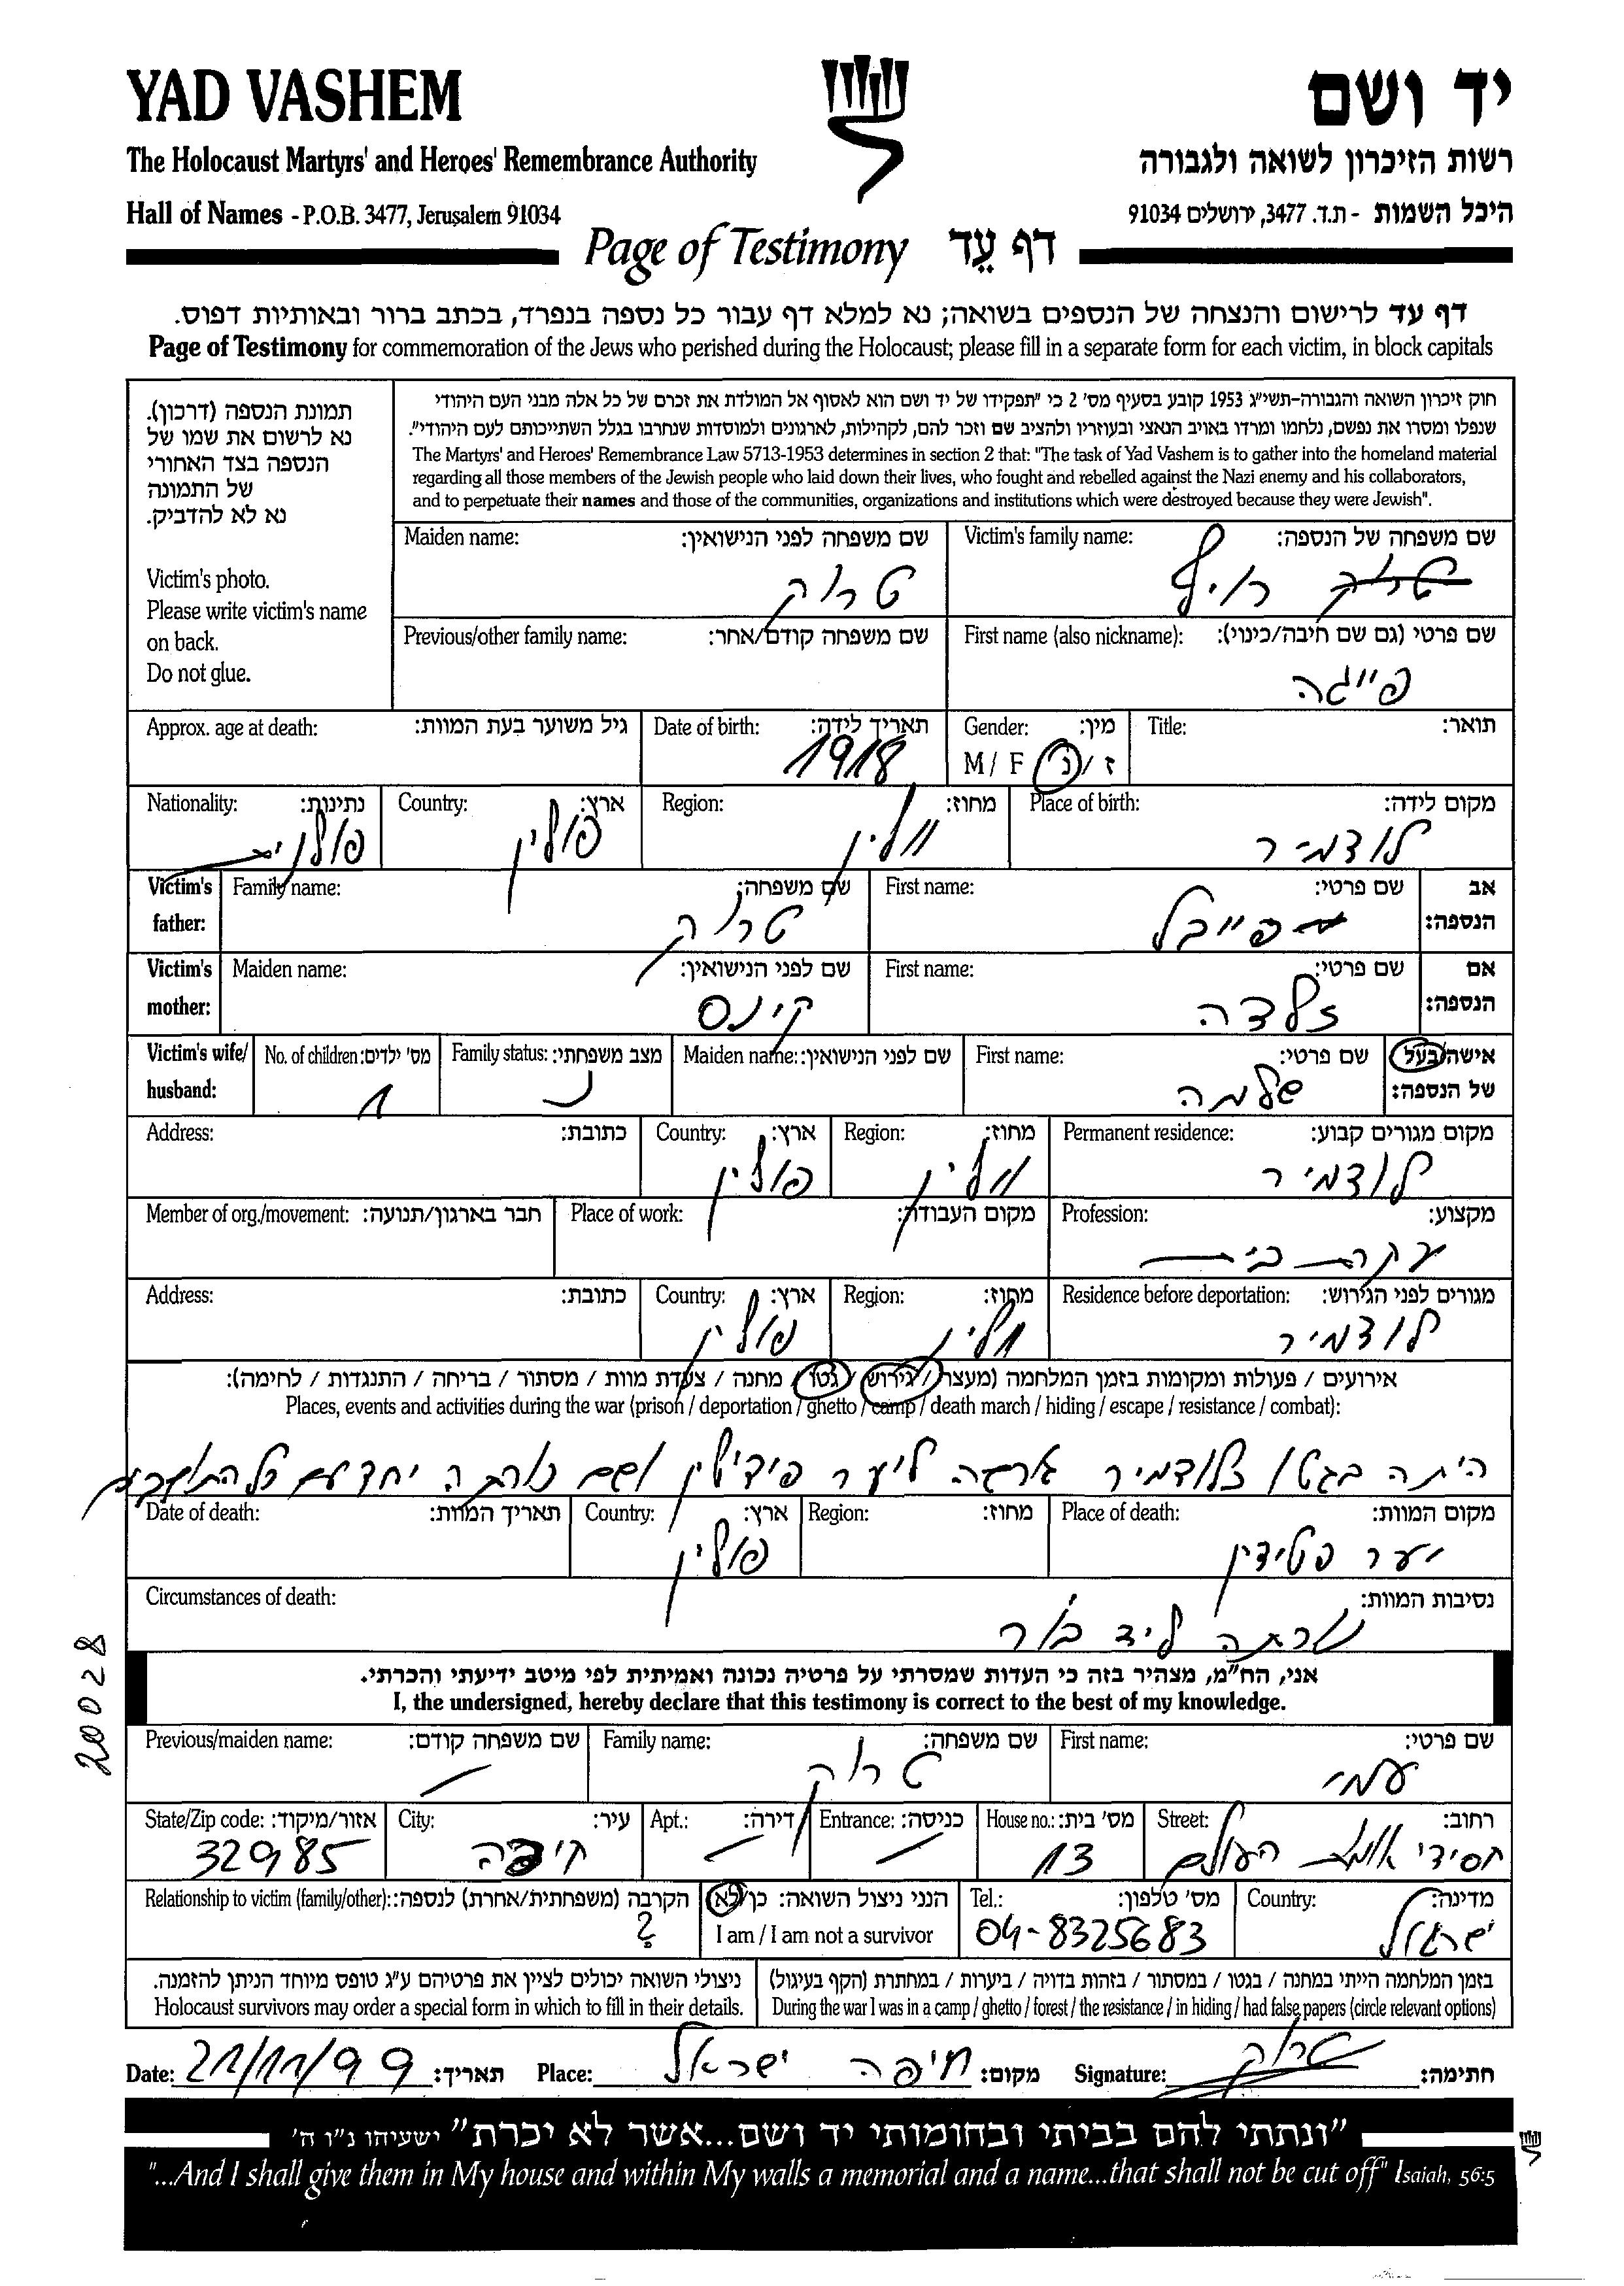 YAD VASHEM
יד ושם
The Holocaust Martyrs' and Heroes' Remembrance Authority
רשות הזיכרון לשואה ולגבורה
Hall of Names - P.O.B. 3477, Jerusalem 91034
היכל השמות - ת.ד. 3477, ירושלים 91034
Page of Testimony דף עֵד
דף עד לרישום והנצחה של הנספים בשואה; נא למלא דף עבור כל נספה בנפרד, בכתב ברור ובאותיות דפוס.
Page of Testimony for commemoration of the Jews who perished during the Holocaust; please fill in a separate form for each victim, in block capitals
תמונת הנספה (דרכון).
נא לרשום את שמו של
הנספה בצד האחורי
של התמונה
נא לא להדביק.
Victim's photo.
Please write victim's name
on back.
Do not glue.
חוק זיכרון השואה והגבורה-תשי״ג 1953 קובע בסעיף מס' 2 כי "תפקידו של יד ושם הוא לאסוף אל המולדת את זכרם של כל אלה מבני העם היהודי
שנפלו ומסרו את נפשם, נלחמו ומרדו באויב הנאצי ובעוזריו ולהציב שם וזכר להם, לקהילות, לארגונים ולמוסדות שנחרבו בגלל השתייכותם לעם היהודי".
The Martyrs' and Heroes' Remembrance Law 5713-1953 determines in section 2 that: "The task of Yad Vashem is to gather into the homeland material
regarding all those members of the Jewish people who laid down their lives, who fought and rebelled against the Nazi enemy and his collaborators,
and to perpetuate their names and those of the communities, organizations and institutions which were destroyed because they were Jewish".
Victim's family name: שם משפחה של הנספה:
רייף
Maiden name: שם משפחה לפני הנישואין:
טרוק
First name (also nickname): שם פרטי (גם שם חיבה/כינוי):
פייגה
Previous/other family name: שם משפחה קודם/אחר:
Title: תואר:
Gender: מין:
M / F ז / נ
Date of birth: תאריך לידה:
1918
Approx. age at death: גיל משוער בעת המוות:
Place of birth: מקום לידה:
לודמיר
Region: מחוז:
וולין
Country: ארץ:
פולין
Nationality: נתינות:
פולנית
Victim's father: אב הנספה:
First name: שם פרטי:
פייבל
Family name: שם משפחה:
טרוק
Victim's mother: אם הנספה:
First name: שם פרטי:
זלדה
Maiden name: שם לפני הנישואין:
קינס
Victim's wife/ husband: אישה/בעל של הנספה:
First name: שם פרטי:
שלמה
Maiden name: שם לפני הנישואין:
Family status: מצב משפחתי:
נ
No. of children: מס' ילדים:
1
Permanent residence: מקום מגורים קבוע:
לודמיר
Region: מחוז:
וולין
Country: ארץ:
פולין
Address: כתובת:
Profession: מקצוע:
עקרת בית
Place of work: מקום העבודה:
Member of org./movement: חבר בארגון/תנועה:
Residence before deportation: מגורים לפני הגירוש:
לודמיר
Region: מחוז:
וולין
Country: ארץ:
פולין
Address: כתובת:
אירועים / פעולות ומקומות בזמן המלחמה (מעצר / גירוש / גטו / מחנה / צעדת מוות / מסתור / בריחה / התנגדות / לחימה):
Places, events and activities during the war (prison / deportation / ghetto / camp / death march / hiding / escape / resistance / combat):
היתה בגטו לודמיר ליער ושם נורתה יחד עם כל התושבים
Place of death: מקום המוות:
יער פטידין
Region: מחוז:
Country: ארץ:
פולין
Date of death: תאריך המוות:
Circumstances of death: נסיבות המוות:
נורתה ליד בור
20028
אני, הח"מ, מצהיר בזה כי העדות שמסרתי על פרטיה נכונה ואמיתית לפי מיטב ידיעתי והכרתי.
I, the undersigned, hereby declare that this testimony is correct to the best of my knowledge.
First name: שם פרטי:
עמי
Family name: שם משפחה:
טרוק
Previous/maiden name: שם משפחה קודם:
Street: רחוב:
חסידי אומות העולם
House no.: מס' בית:
13
Entrance: כניסה:
Apt.: דירה:
City: עיר:
חיפה
State/Zip code: אזור/מיקוד:
32985
Country: מדינה:
ישראל
Tel.: מס' טלפון:
04-8325683
הנני ניצול השואה: כן/לא
I am / I am not a survivor
Relationship to victim (family/other): הקרבה (משפחתית/אחרת) לנספה:
?
בזמן המלחמה הייתי במחנה / בגטו / במסתור / בזהות בדויה / ביערות / במחתרת (הקף בעיגול)
During the war I was in a camp / ghetto / forest / the resistance / in hiding / had false papers (circle relevant options)
ניצולי השואה יכולים לציין את פרטיהם ע"ג טופס מיוחד הניתן להזמנה.
Holocaust survivors may order a special form in which to fill in their details.
Date: 21/11/99 תאריך: Place: חיפה ישראל מקום: Signature: טרוק חתימה:
"ונתתי להם בביתי ובחומותי יד ושם...אשר לא יכרת" ישעיהו נ"ו ה'
"...And I shall give them in My house and within My walls a memorial and a name...that shall not be cut off" Isaiah, 56:5